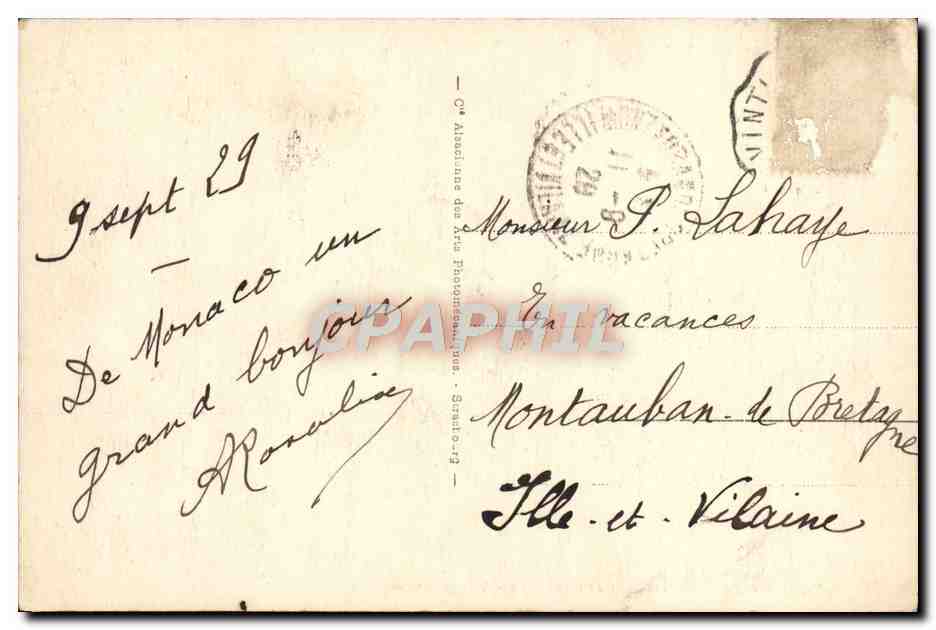 9 sept 29
De Monaco un
grand bonjour
— Cie Alsacienne des Arts Photomécaniques. - Strasbourg —
VINTI
11-9
29
Monsieur P. Lahaye
En vacances
Montauban-de Bretagne
Ille-et-Vilaine
CPAPHIL